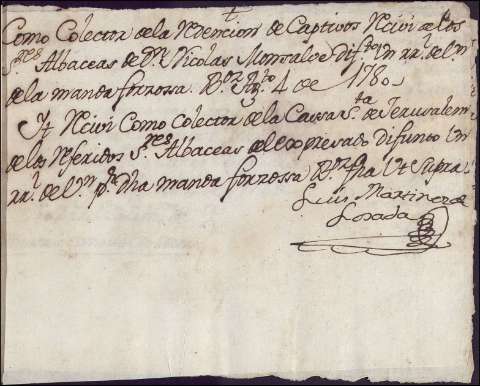 Como Colector de la Redencion de Captivos Reciví de los
S.res Albaceas de D.n Nicolas Monsalve Dif.to Un rr.l de V.n
de la manda forzossa. 4 de 1780
Yt Reciví Como Colector de la Cassa S.ta de Jerusalem
de los Referidos S.res Albaceas del expresado Difunto Un
rr.l de V.n p.r dha manda forzossa fha Ut Supra
Luis Martinez de
Losada